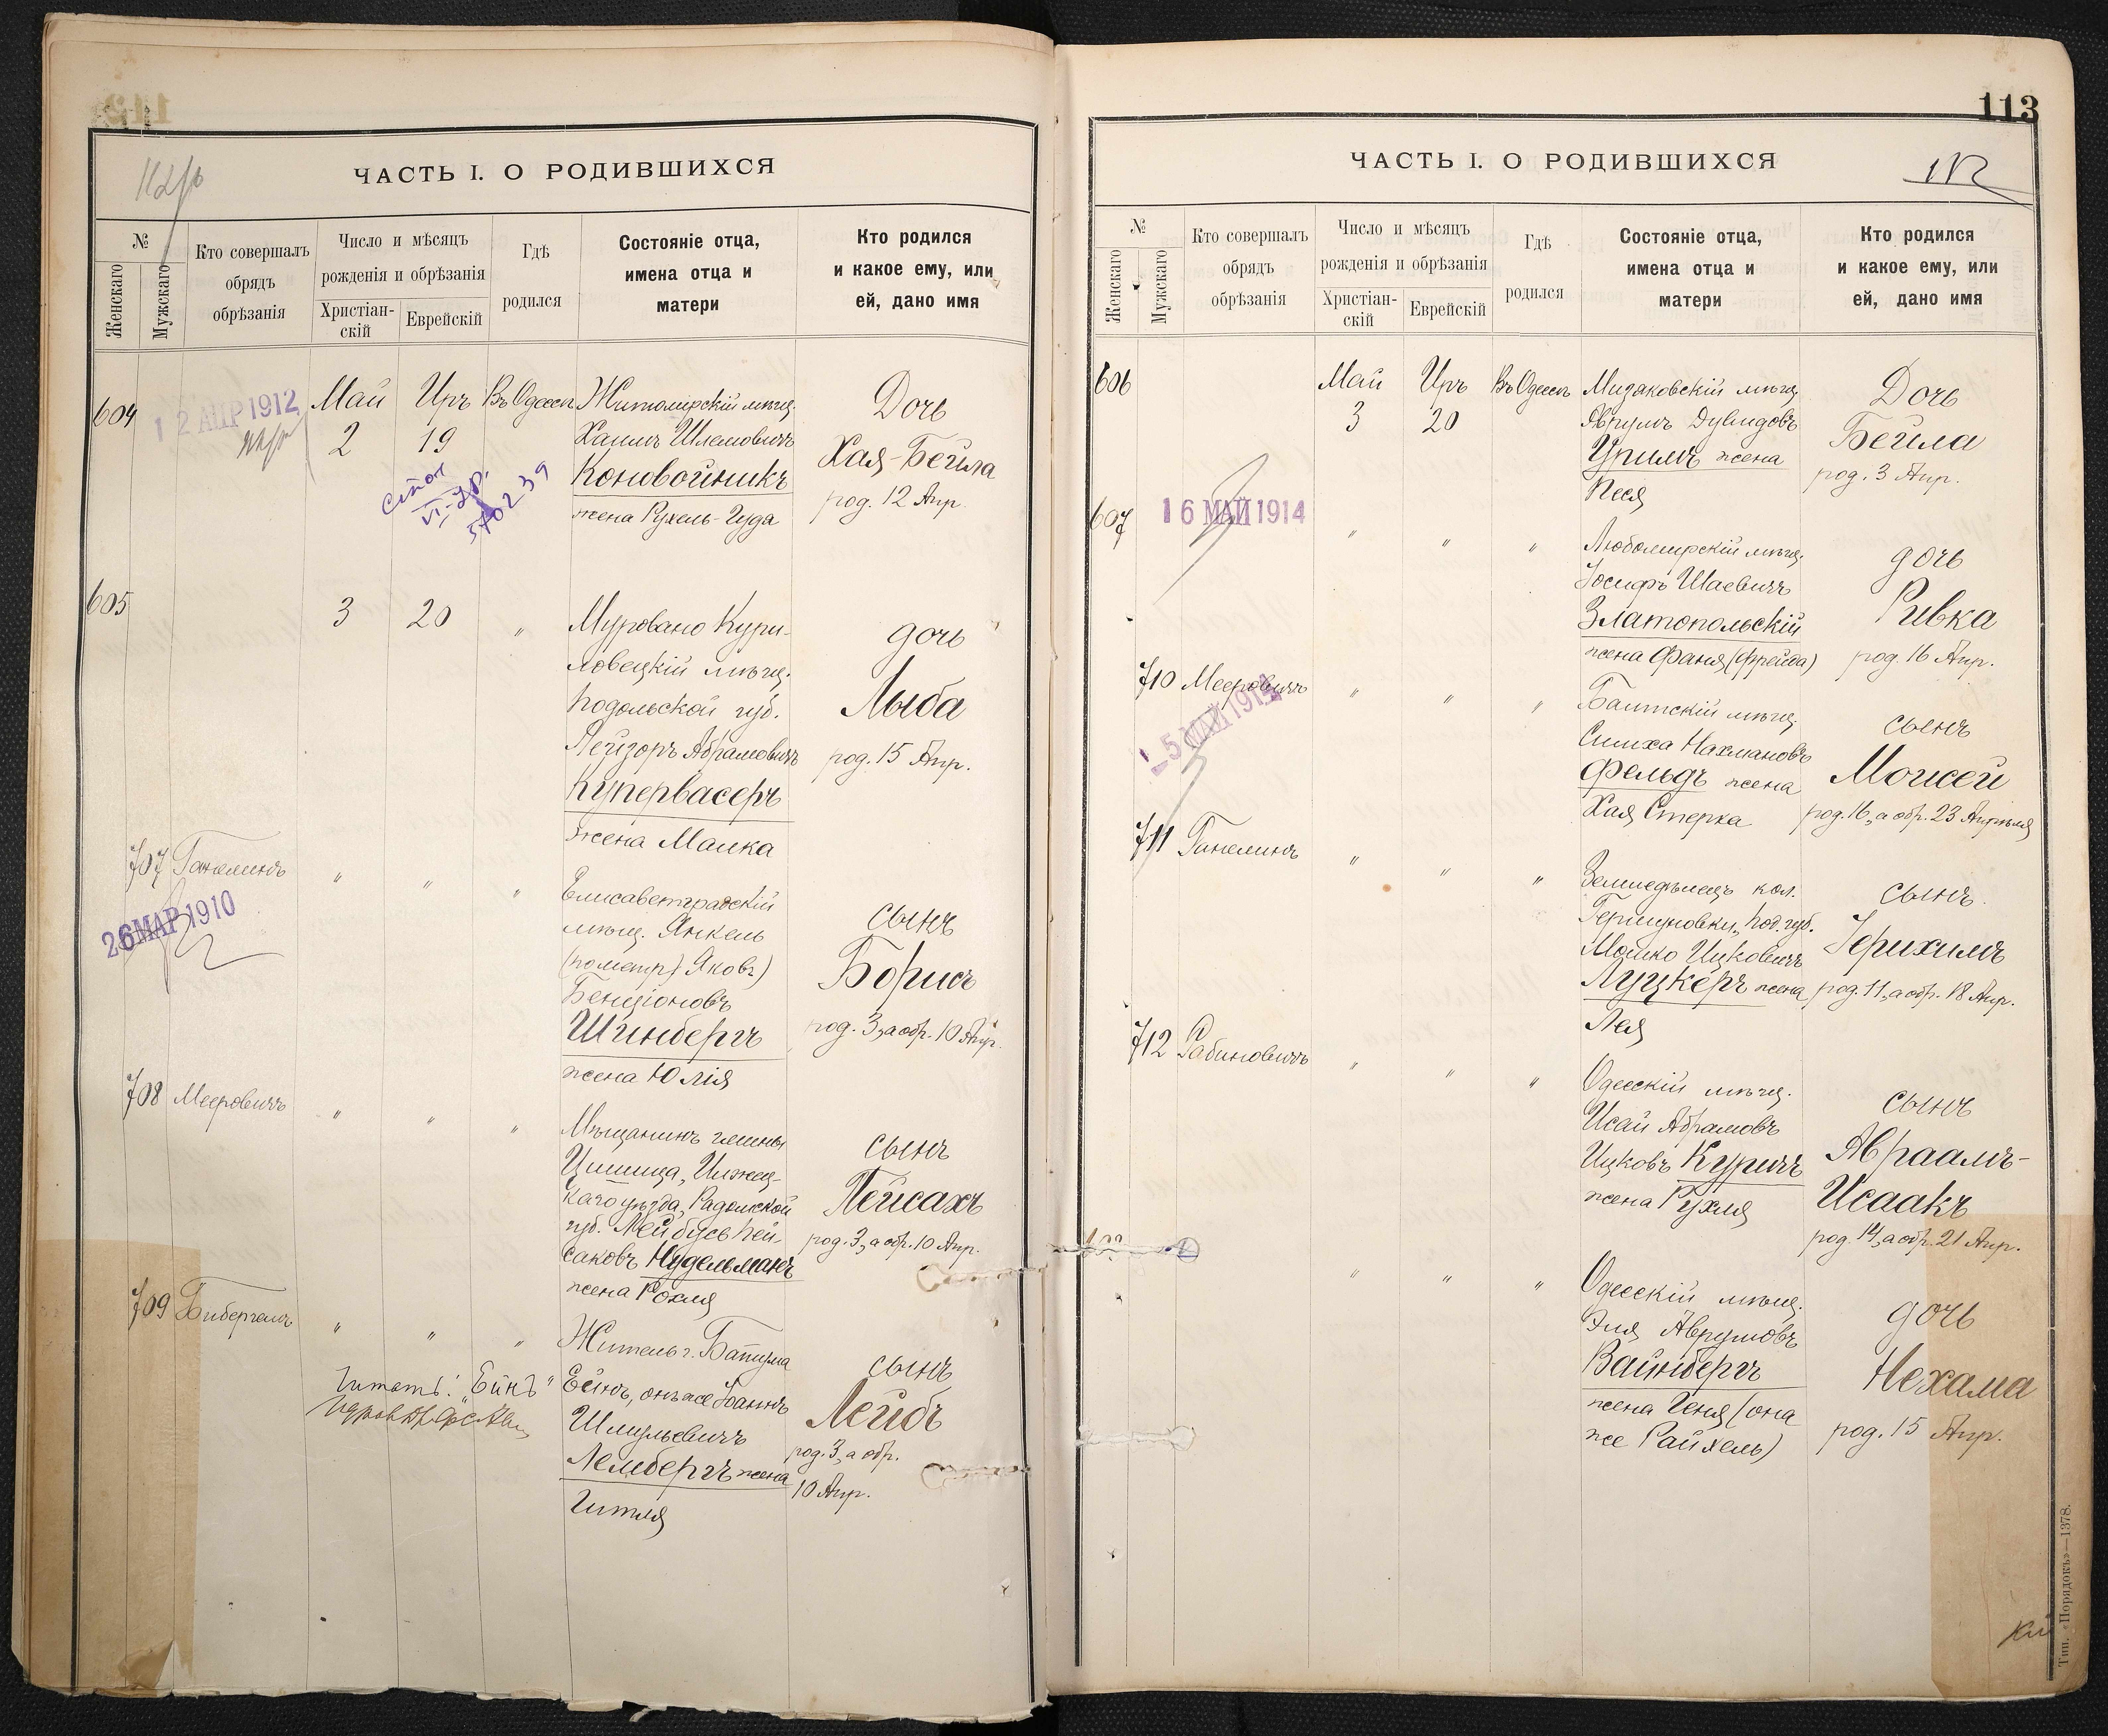 ЧАСТЬ I. О РОДИВШИХСЯ
№
Женскаго
Мужскаго
Кто совершалъ
обрядъ
обрѣзанія
Число и мѣсяцъ
рожденія и обрѣзанія
Христіан-
скій
Еврейскій
Гдѣ
родился
Состояніе отца,
имена отца и
матери
Кто родился
и какое ему, или
ей, дано имя
604
12 АПР 1912
Май
2
Иръ
19
Въ Одессѣ
Житомирскій мѣщ.
Хаимъ Шлемовичъ
Коновойникъ
жена Рухель-Гуда
Дочь
Хая-Бейла
род. 12 Апр.
605
3
20
"
Муровано Кури-
ловецкій мѣщ.
Подольской губ.
Лейзоръ Абрамовичъ
Купервасеръ
жена Малка
дочь
Лыба
род. 15 Апр.
707
Ганелинъ
26 МАР 1910
"
"
"
Елисаветградскій
мѣщ. Янкель
Яковъ)
Бенціоновъ
Шинбергъ
жена Юлія
сынъ
Борисъ
род. 3, а обр. 10 Апр.
708
Мееровичъ
"
"
"
Мѣщанинъ гмины
каго уѣзда, Радомской
губ. Лейбусь Пей-
саховъ Нудельманъ
жена Рохля
сынъ
Пейсахъ
род. 3, а обр. 10 Апр.
709
Бибергалъ
"
"
"
Читать: "Ейнъ"
Житель г. Батума
Ейнъ, онъ же Іоаннъ
Шмульевичъ
Лембергъ жена
Гитля
сынъ
Лейбъ
род. 3, а обр.
10 Апр.
113
ЧАСТЬ I. О РОДИВШИХСЯ
112
№
Женскаго
Мужскаго
Кто совершалъ
обрядъ
обрѣзанія
Число и мѣсяцъ
рожденія и обрѣзанія
Христіан-
скій
Еврейскій
Гдѣ
родился
Состояніе отца,
имена отца и
матери
Кто родился
и какое ему, или
ей, дано имя
606
Май
3
Иръ
20
Въ Одессѣ
Мизяковскій мѣщ.
Аврумъ Дувидовъ
Уримъ жена
Песя
Дочь
Бейла
род. 3 Апр.
607
16 МАЙ 1914
"
"
"
Любомирскій мѣщ.
Іосифъ Шаевичъ
Златопольскій
жена Фаня (Фрейда)
дочь
Ривка
род. 16 Апр.
710
Мееровичъ
"
"
"
Балтскій мѣщ.
Симха Нахмановъ
Фельдъ жена
Хая Стерка
сынъ
Моисей
род. 16, а обр. 23 Апрѣля
711
Ганелинъ
"
"
"
Земледѣлецъ кол.
Под. губ.
Мошко Ицковичъ
Луцкеръ жена
Лея
сынъ
Іерихимъ
род. 11, а обр. 18 Апр.
712
Рабиновичъ
"
"
"
Одесскій мѣщ.
Исай Абрамовъ
Ицковъ Куричъ
жена Рухля
сынъ
Авраамъ-
Исаакъ
род. 14, а обр. 21 Апр.
"
"
"
Одесскій мѣщ.
Эля Аврумовъ
Вайнбергъ
жена Геня (она
же Райхель)
дочь
Нехама
род. 15 Апр.
Тип. «Порядокъ»—1378.